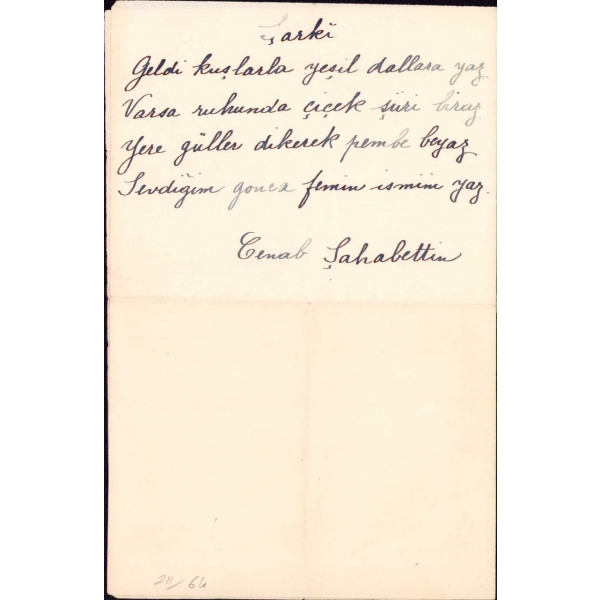 Şarkı
Geldi kuşlarla yeşil dallara yaz
Varsa ruhunda çiçek şiiri biraz
Yere güller dikerek pembe beyaz
Sevdiğim gonca femin ismini yaz.
Cenab Şahabettin
211/64